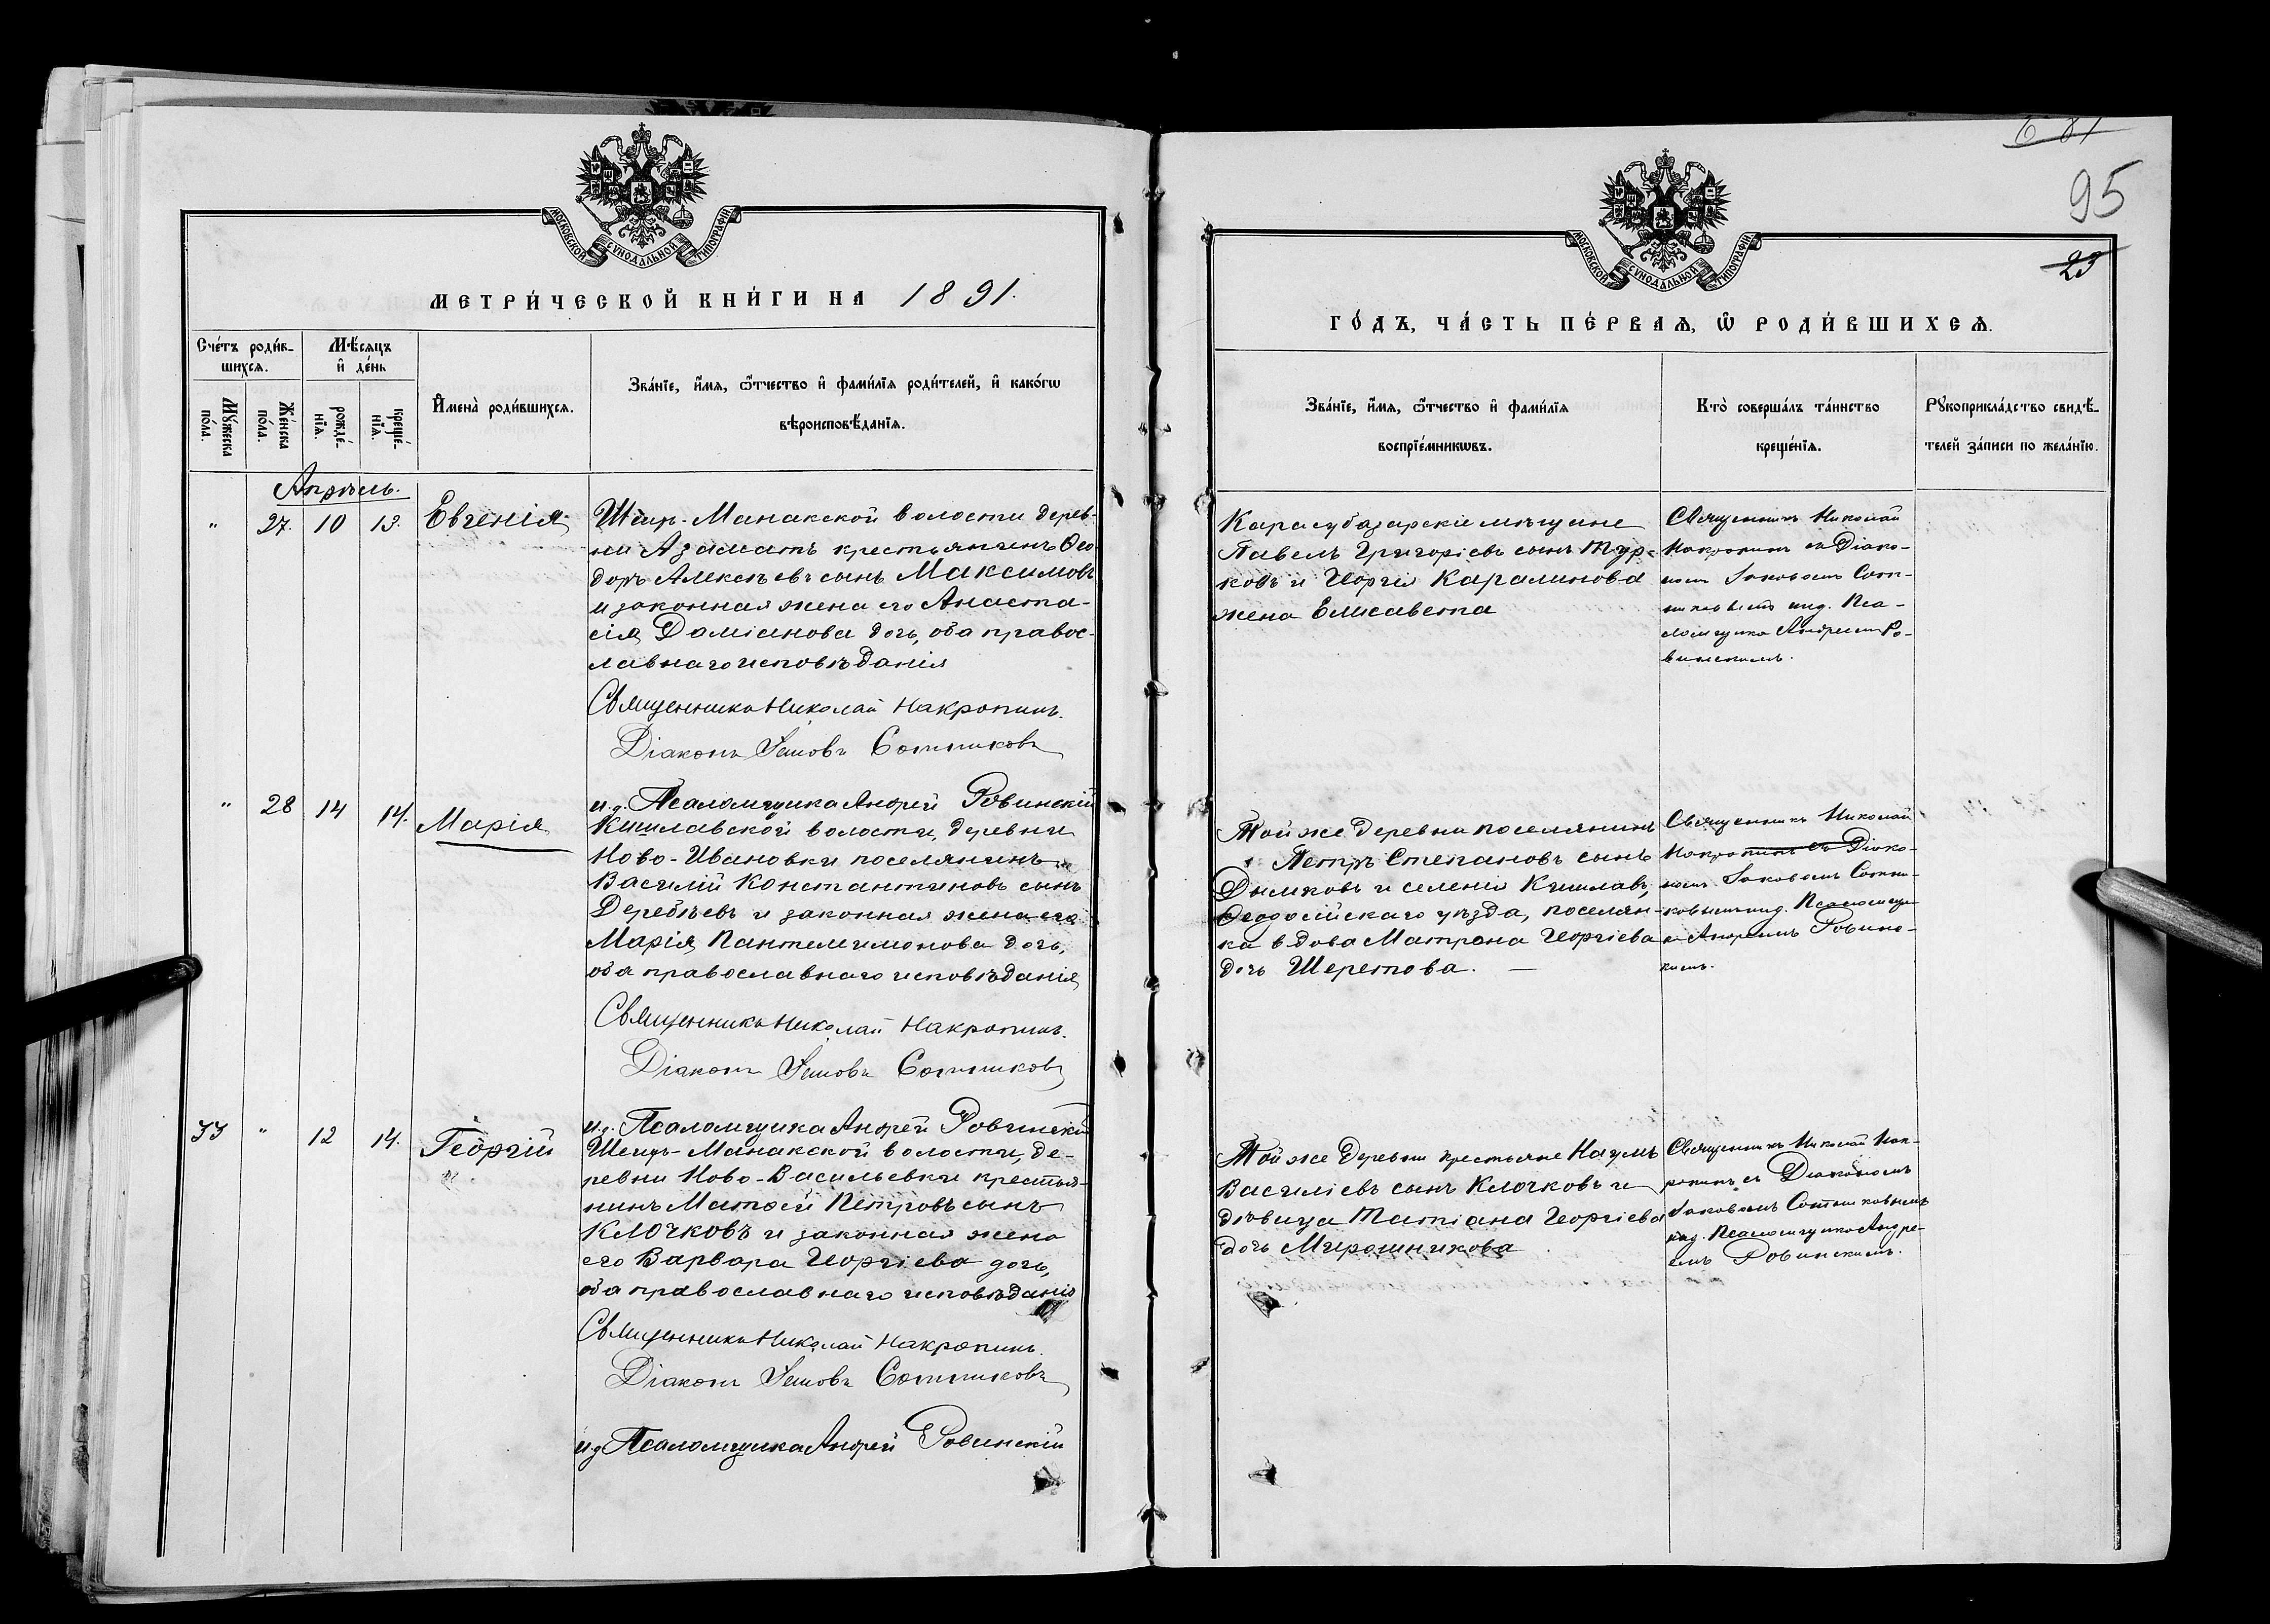 95
23
МОСКОВСКОЙ СѴНОДАЛЬНОЙ ТИПОГРАФІИ
МЕТРИ́ЧЕСКОЙ КНИ́ГИ НА 1891.
Сче́тъ роди́в-
шихся.
Мѣ́сяцъ
и҆ де́нь
Мꙋ́жеска
по́ла.
Же́нска
по́ла.
рожде́-
нїя.
креще́-
нїя.
И҆мена̀ роди́вшихся.
Зва́нїе, и҆́мя, ѻ҆́тчество и҆ фами́лїя роди́телей, и҆ како́гѡ
вѣроисповѣ́данїя.
Апрѣль.
" 27. 10 13. Евгенія
Шеих-Манакской волости дерев-
ни Азаматъ крестьянинъ Ѳео-
доръ Алексѣевъ сынъ Максимовъ
и законная жена его Анаста-
сія Даміанова дочь, оба правос-
лавнаго исповѣданія
Священникъ Николай Накропинъ.
Діаконъ Іаковъ Сотниковъ
и.д. Псаломщика Андрей Ровинскій
" 28 14 14. Марія
Кишлавской волости, деревни
Ново-Ивановки поселянинъ
Василій Константиновъ сынъ
Деребѣевъ и законная жена его
Марія Пантелимонова дочь,
оба православнаго исповѣданія
Священникъ Николай Накропинъ.
Діаконъ Іаковъ Сотниковъ
и.д. Псаломщика Андрей Ровинскій
33 " 12 14. Георгій
Шеихъ-Манакской волости, де-
ревни Ново-Васильевки крестья-
нинъ Матѳей Петровъ сынъ
Клочковъ и законная жена
его Варвара Георгіева дочь,
оба православнаго исповѣданія
Священникъ Николай Накропинъ.
Діаконъ Іаковъ Сотниковъ
и д Псаломщика Андрей Ровинскій
МОСКОВСКОЙ СѴНОДАЛЬНОЙ ТИПОГРАФІИ
ГО́ДЪ, ЧА́СТЬ ПЕ́РВАЯ, Ѡ҆ РОДИ́ВШИХСЯ.
Зва́нїе, и҆́мя, ѻ҆́тчество и҆ фами́лїя
воспрїе́мникѡвъ.
Кто̀ соверша́лъ та́инство
креще́нїя.
Рꙋкоприкла́дство свидѣ́-
телей за́писи по жела́нїю.
Карасубазарскіе мѣщане
Павелъ Григоріевъ сынъ Тур-
ковъ и Георгія Каралинова
жена Елисавета
Священникъ Николай
Накропинъ съ Діако-
номъ Іаковомъ Сот-
никовымъ и.д. Пса-
ломщика Андреемъ Ро-
винскимъ.
Той же деревни поселянинъ
Петръ Степановъ сынъ
Дымковъ и селенія Кишлавъ,
Ѳеодосійскаго уѣзда, поселян-
ка вдова Матрона Георгіева
дочь Шеретова. —
Священникъ Николай
Накропинъ съ Діако-
номъ Іаковомъ Сотни-
ковымъ и.д. Псаломщи-
ка Андреемъ Ровинс-
кимъ.
Той же деревни крестьяне Наумъ
Василіевъ сынъ Клочковъ и
дѣвица Татіана Георгіева
дочь Мирошникова
Священникъ Николай Нак-
ропинъ съ Діакономъ
Іаковомъ Сотниковымъ
и.д. Псаломщика Андре-
емъ Ровинскимъ.